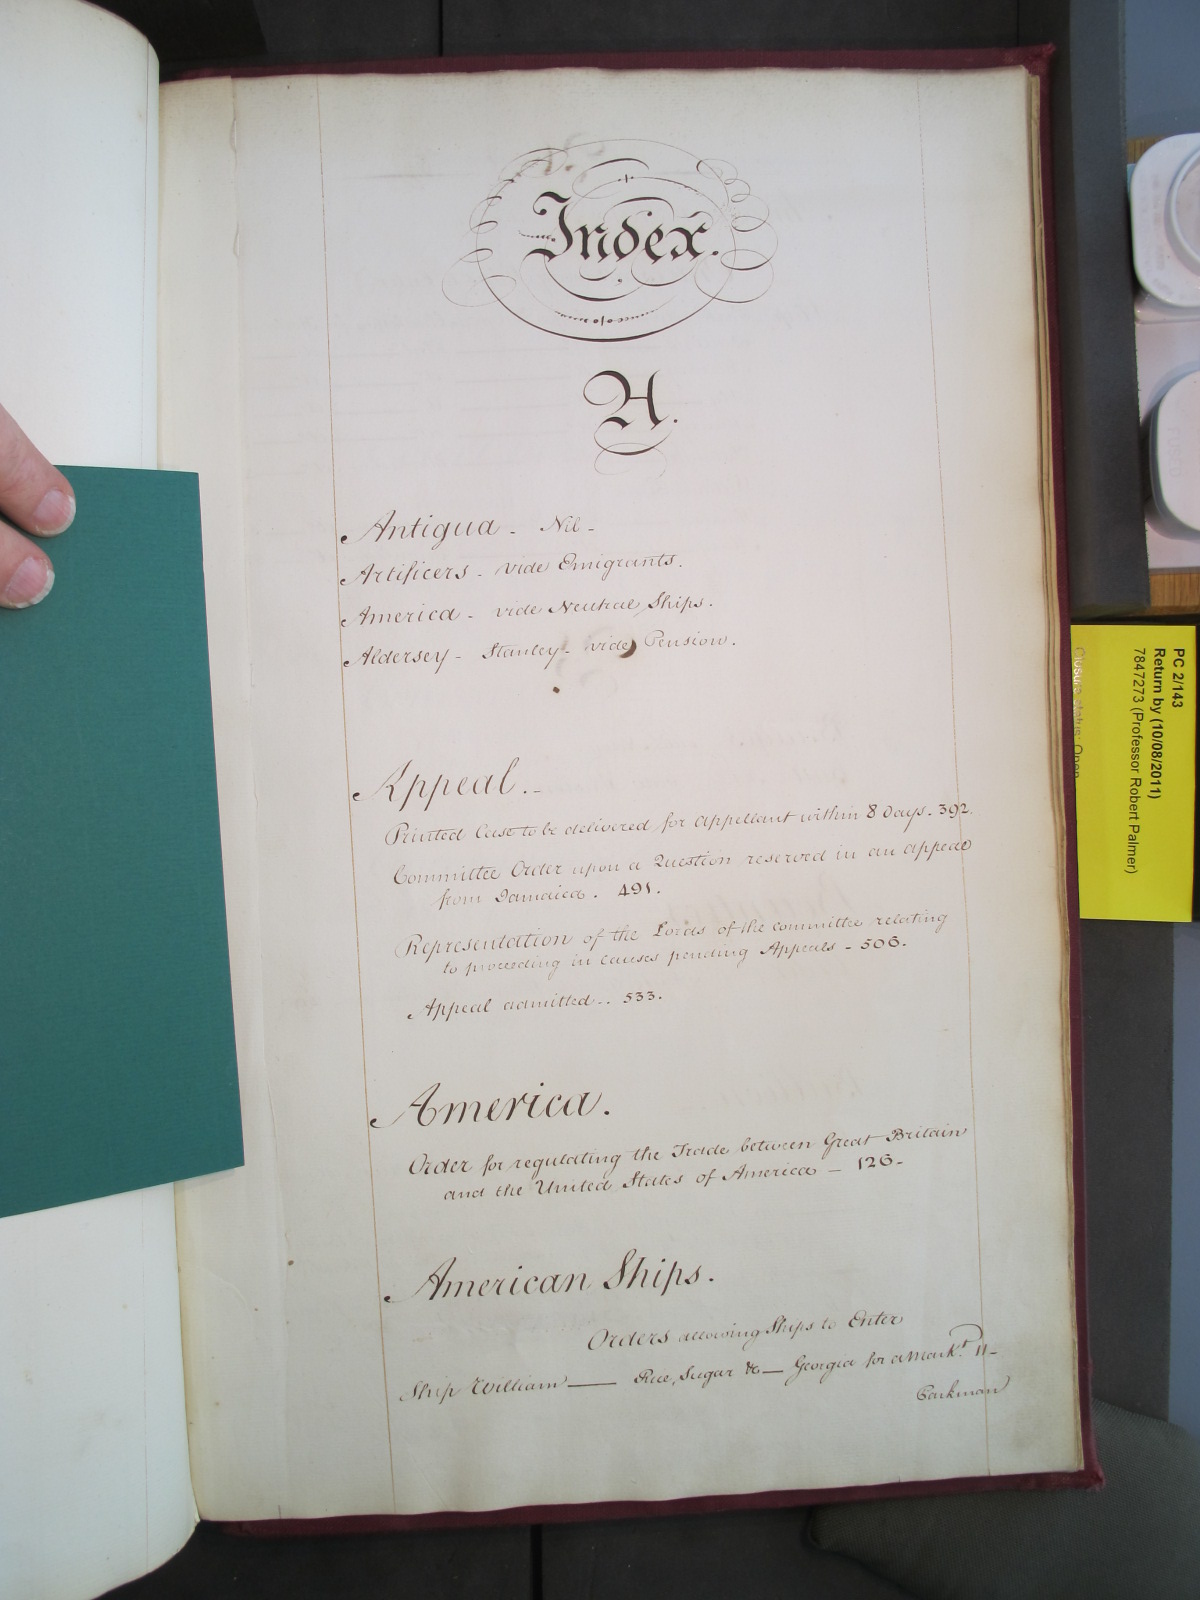 Index.
A.
Antigua - Nil -
Artificers - vide Emigrants.
America - vide Neutral Ships.
Aldersey - Stanley - vide Pension.
Appeal. -
Printed Case to be delivered for appellant within 8 Days - 392.
Committee Order upon a Question reserved in an appeal
from Jamaica. 491.
Representation of the Lords of the committee relating
to proceeding in causes pending Appeals - 506.
Appeal admitted .. 533.
America.
Order for regulating the Trade between Great Britain
and the United States of America - 126 -
American Ships.
Orders allowing Ships to Enter
Ship William — Rice, Sugar &c — Georgia for a Markt. 11 -
Parkman
PC 2/143
Return by (10/08/2011)
7847273 (Professor Robert Palmer)
Closure status: Open